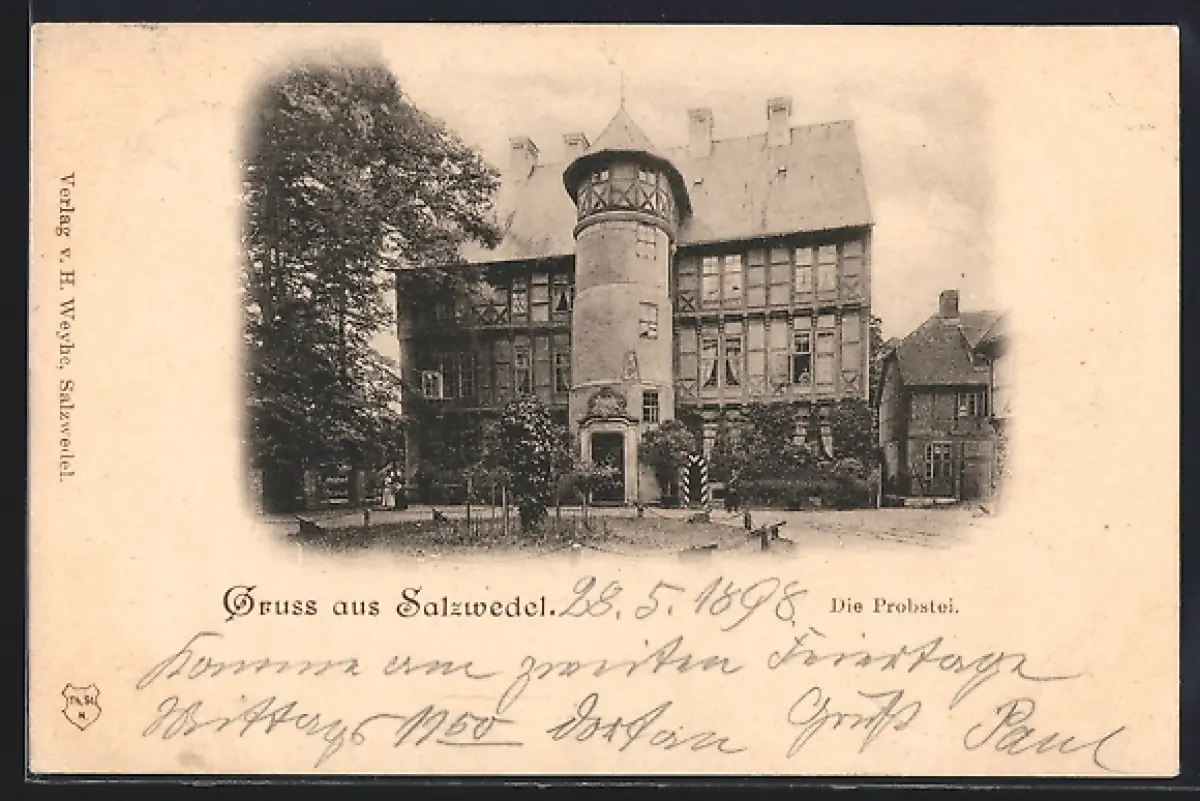 Verlag v. H. Weyhe, Salzwedel.
Gruss aus Salzwedel. 28. 5. 1898. Die Probstei.
Komme am zweiten Feiertage
Mittags 1150 dortan Gruß Paul